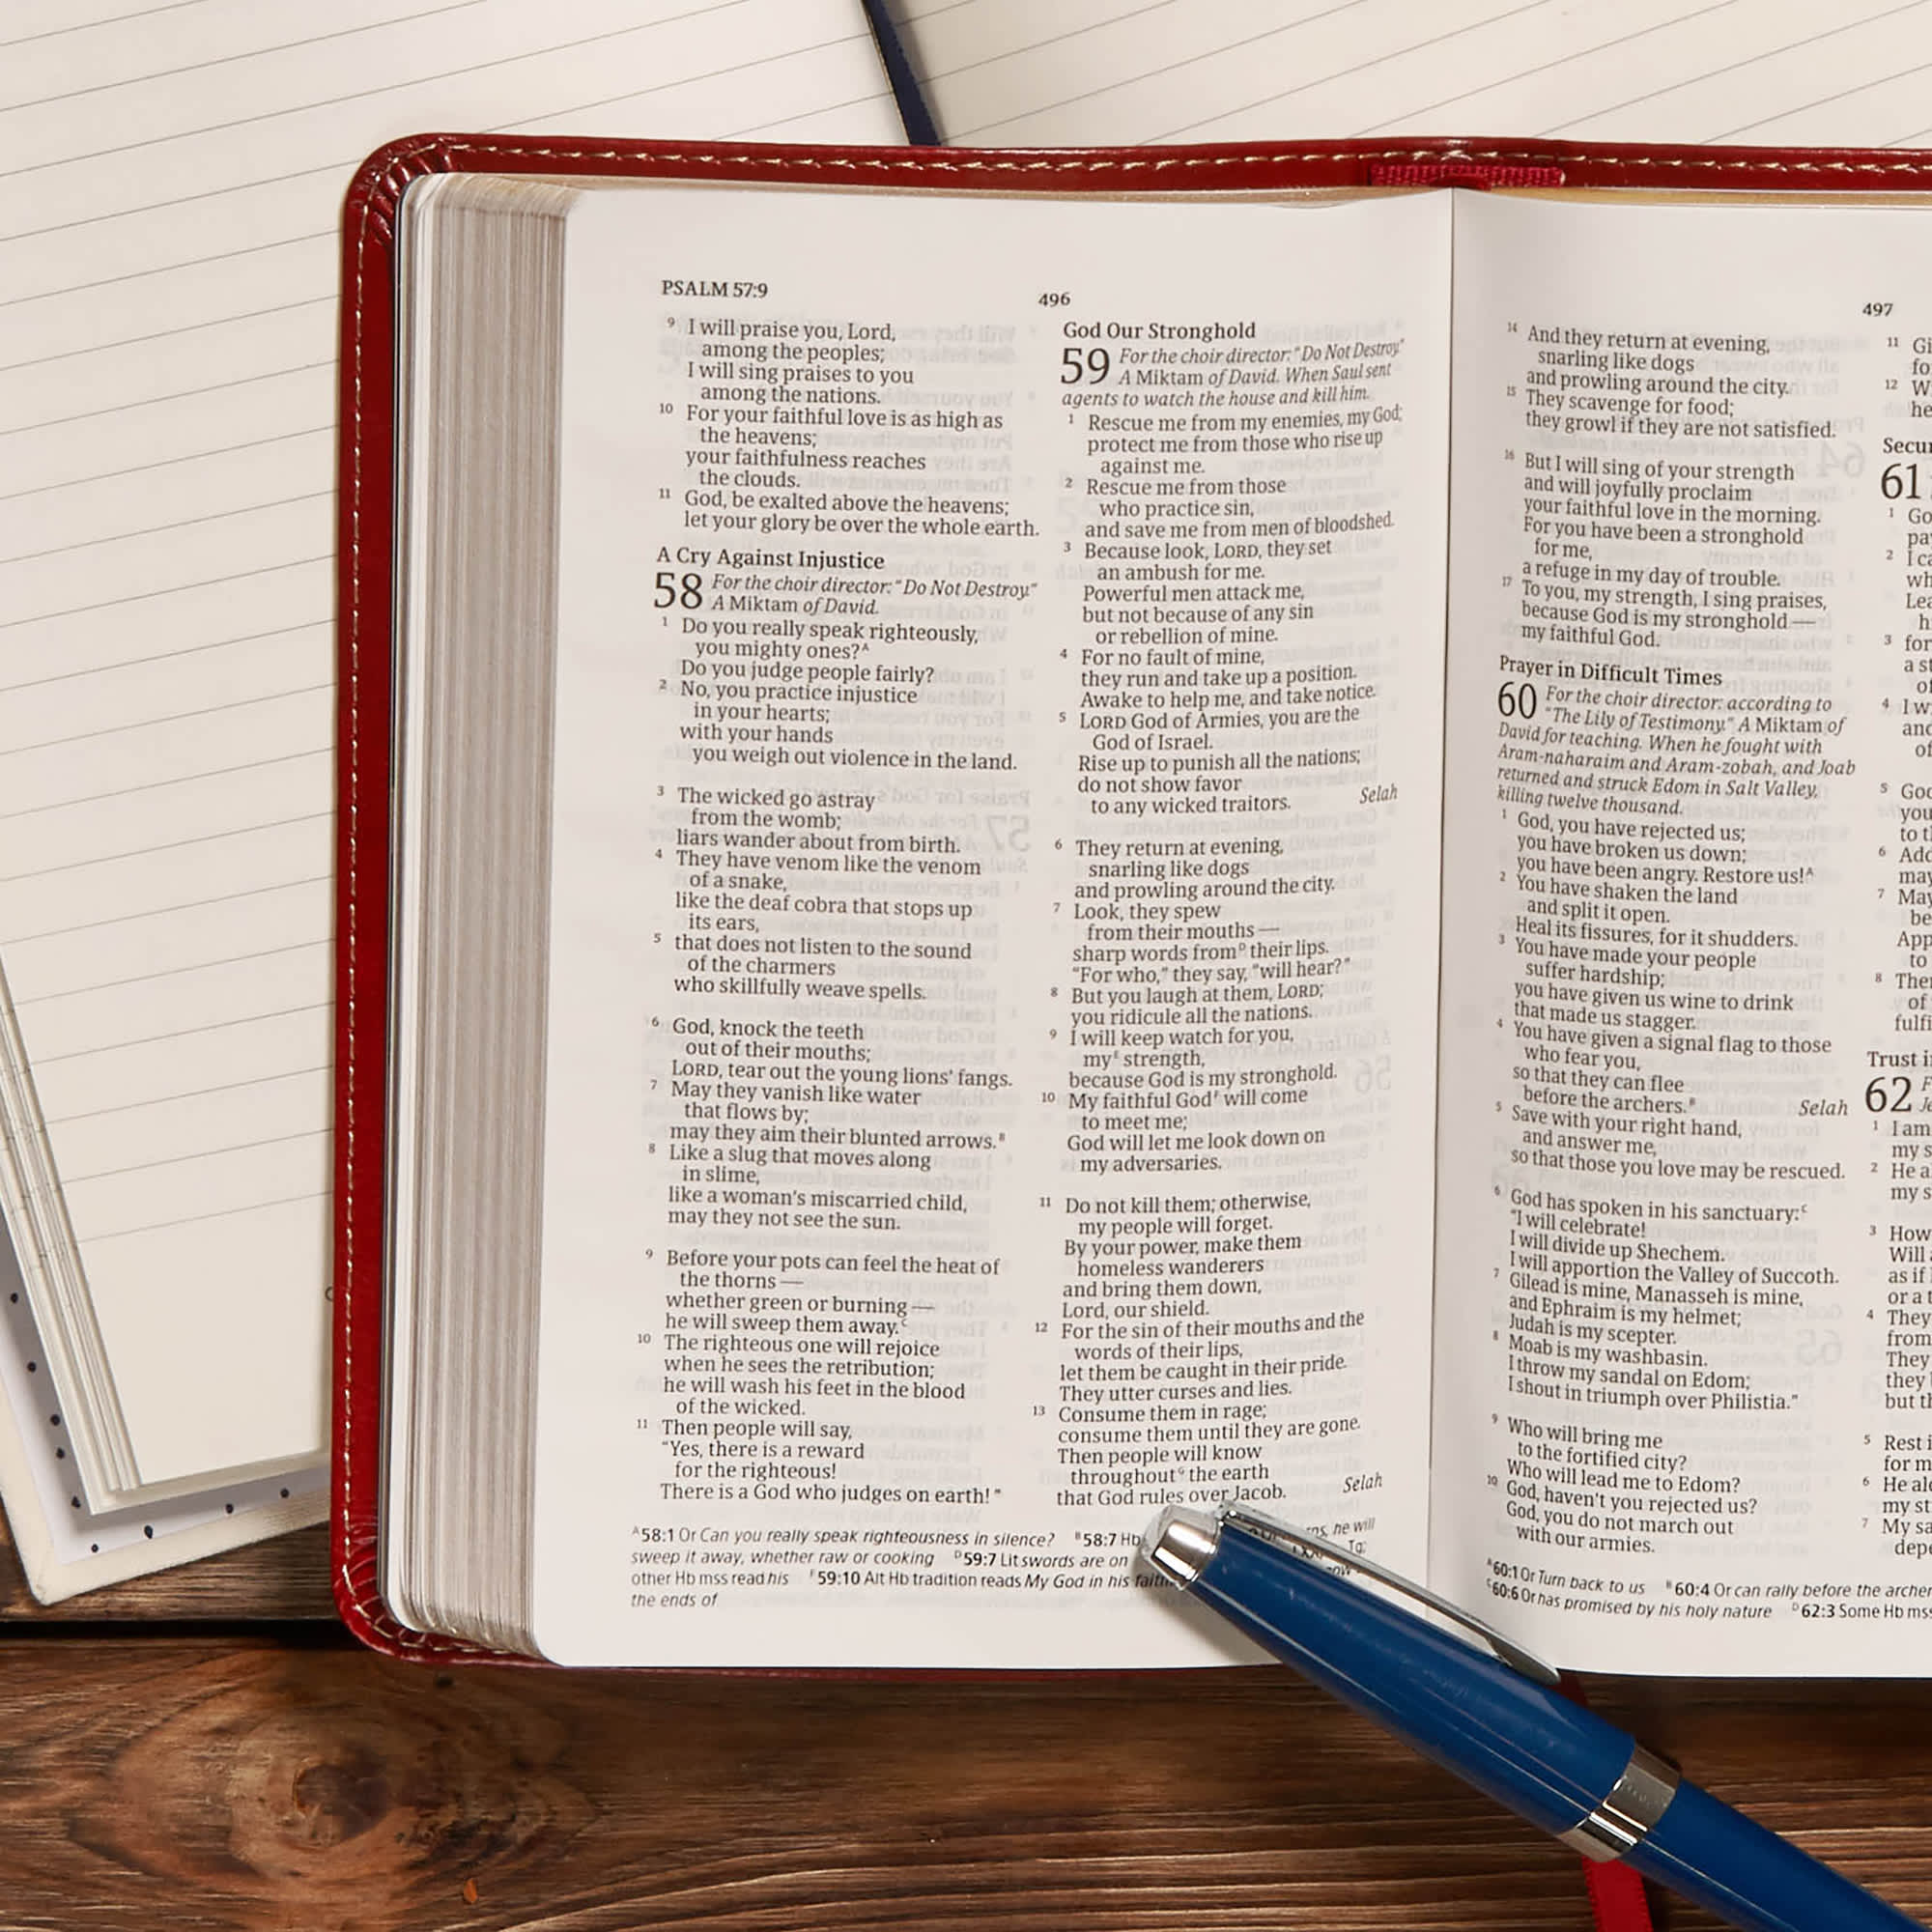 PSALM 57:9
496
9 I will praise you, Lord,
among the peoples;
I will sing praises to you
among the nations.
10 For your faithful love is as high as
the heavens;
your faithfulness reaches
the clouds.
11 God, be exalted above the heavens;
let your glory be over the whole earth.
A Cry Against Injustice
58 For the choir director: “Do Not Destroy.”
A Miktam of David.
1 Do you really speak righteously,
you mighty ones?A
Do you judge people fairly?
2 No, you practice injustice
in your hearts;
with your hands
you weigh out violence in the land.
3 The wicked go astray
from the womb;
liars wander about from birth.
4 They have venom like the venom
of a snake,
like the deaf cobra that stops up
its ears,
5 that does not listen to the sound
of the charmers
who skillfully weave spells.
6 God, knock the teeth
out of their mouths;
LORD, tear out the young lions’ fangs.
7 May they vanish like water
that flows by;
may they aim their blunted arrows.B
8 Like a slug that moves along
in slime,
like a woman’s miscarried child,
may they not see the sun.
9 Before your pots can feel the heat of
the thorns —
whether green or burning —
he will sweep them away.C
10 The righteous one will rejoice
when he sees the retribution;
he will wash his feet in the blood
of the wicked.
11 Then people will say,
“Yes, there is a reward
for the righteous!
There is a God who judges on earth!”
God Our Stronghold
59 For the choir director: “Do Not Destroy.”
A Miktam of David. When Saul sent
agents to watch the house and kill him.
1 Rescue me from my enemies, my God;
protect me from those who rise up
against me.
2 Rescue me from those
who practice sin,
and save me from men of bloodshed.
3 Because look, LORD, they set
an ambush for me.
Powerful men attack me,
but not because of any sin
or rebellion of mine.
4 For no fault of mine,
they run and take up a position.
Awake to help me, and take notice.
5 LORD God of Armies, you are the
God of Israel.
Rise up to punish all the nations;
do not show favor
to any wicked traitors. Selah
6 They return at evening,
snarling like dogs
and prowling around the city.
7 Look, they spew
from their mouths —
sharp words fromD their lips.
“For who,” they say, “will hear?”
8 But you laugh at them, LORD;
you ridicule all the nations.
9 I will keep watch for you,
myE strength,
because God is my stronghold.
10 My faithful GodF will come
to meet me;
God will let me look down on
my adversaries.
11 Do not kill them; otherwise,
my people will forget.
By your power, make them
homeless wanderers
and bring them down,
Lord, our shield.
12 For the sin of their mouths and the
words of their lips,
let them be caught in their pride.
They utter curses and lies.
13 Consume them in rage;
consume them until they are gone.
Then people will know
throughoutG the earth
that God rules over Jacob. Selah
A58:1 Or Can you really speak righteousness in silence? B58:7 Hb he will
sweep it away, whether raw or cooking D59:7 Lit swords are on Tg;
other Hb mss read his F59:10 Alt Hb tradition reads My God in his
the ends of
497
14 And they return at evening,
snarling like dogs
and prowling around the city.
15 They scavenge for food;
they growl if they are not satisfied.
16 But I will sing of your strength
and will joyfully proclaim
your faithful love in the morning.
For you have been a stronghold
for me,
a refuge in my day of trouble.
17 To you, my strength, I sing praises,
because God is my stronghold —
my faithful God.
Prayer in Difficult Times
60 For the choir director: according to
“The Lily of Testimony.” A Miktam of
David for teaching. When he fought with
Aram-naharaim and Aram-zobah, and Joab
returned and struck Edom in Salt Valley,
killing twelve thousand.
1 God, you have rejected us;
you have broken us down;
you have been angry. Restore us!A
2 You have shaken the land
and split it open.
Heal its fissures, for it shudders.
3 You have made your people
suffer hardship;
you have given us wine to drink
that made us stagger.
4 You have given a signal flag to those
who fear you,
so that they can flee
before the archers.B Selah
5 Save with your right hand,
and answer me,
so that those you love may be rescued.
6 God has spoken in his sanctuary:C
“I will celebrate!
I will divide up Shechem.
I will apportion the Valley of Succoth.
7 Gilead is mine, Manasseh is mine,
and Ephraim is my helmet;
Judah is my scepter.
8 Moab is my washbasin.
I throw my sandal on Edom;
I shout in triumph over Philistia.”
9 Who will bring me
to the fortified city?
Who will lead me to Edom?
10 God, haven’t you rejected us?
God, you do not march out
with our armies.
A60:1 Or Turn back to us B60:4 Or can rally before the
C60:6 Or has promised by his holy nature D62:3 Some Hb mss
11
12
61
1
2
3 for
4
5
6
7 May
8
of
62
1 I am
2
3 How
Will
as if
4 They
from
They
they
5 Rest
for
6
7 My